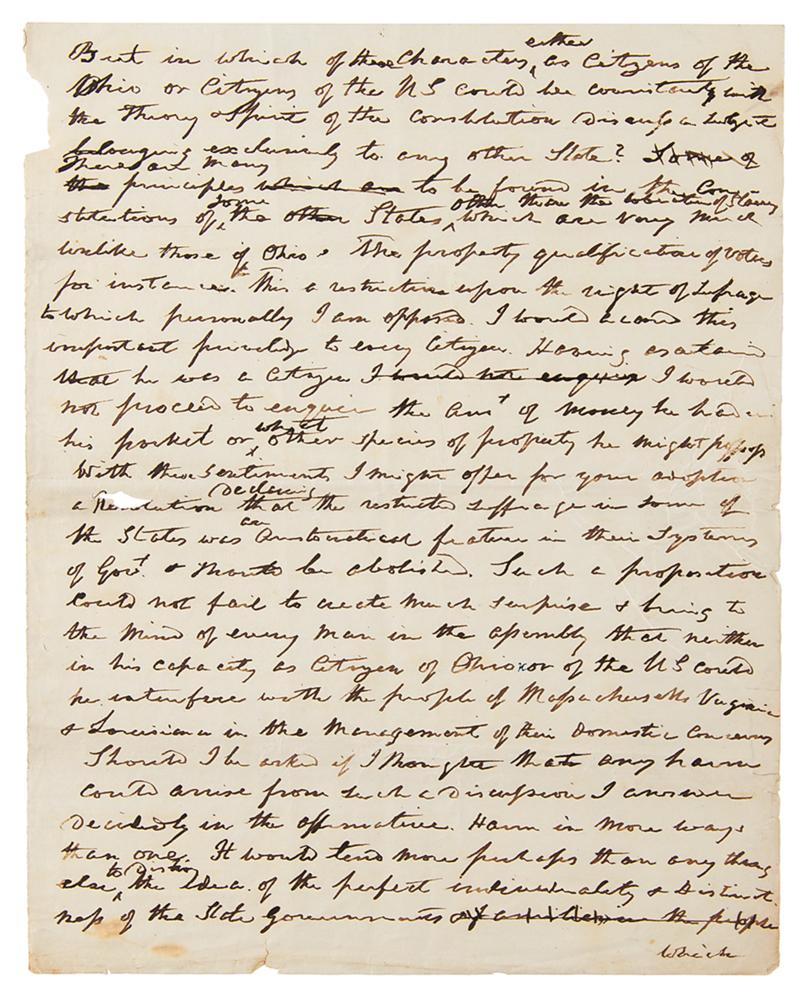 either
But in which of these Characters, as Citizens of the
Ohio or Citizens of the US could we consistently with
the Theory & Spirit of the Constitution Discuss a Subject
belonging exclusively to any other State? Some of
There are many
the principles which are to be found in the Con-
some other than the toleration of Slavery
stitutions of the other States, which are very much
unlike those of Ohio. The property qualification of Voters
for instance. This a restriction upon the right of Suffrage
to which personally I am opposed. I would accord this
important privilege to every Citizen. Having ascertained
that he was a Citizen I would not enquire I would
not proceed to enquire the Amt of money he had in
what
his pocket or other species of property he might possess
With these sentiments I might offer for your adoption
declaring
a Resolution that the restricted suffrage in some of
an
the States was Aristocratical feature in their Systems
of Govt. & should be abolished. Such a proposition
could not fail to create much surprise & bring to
the mind of every man in the assembly that neither
in his capacity as Citizen of Ohio or of the US could
he interfere with the people of Massachusetts Virginia
& Louisiana in the management of their Domestic Concerns
Should I be asked if I thought that any harm
could arise from such a Discussion I answer
Decidedly in the affirmative. Harm in more ways
than one. It would tend more perhaps than any thing
to Destroy
else, the Idea of the perfect individuality & Distinct-
ness of the State Governments in the people
which